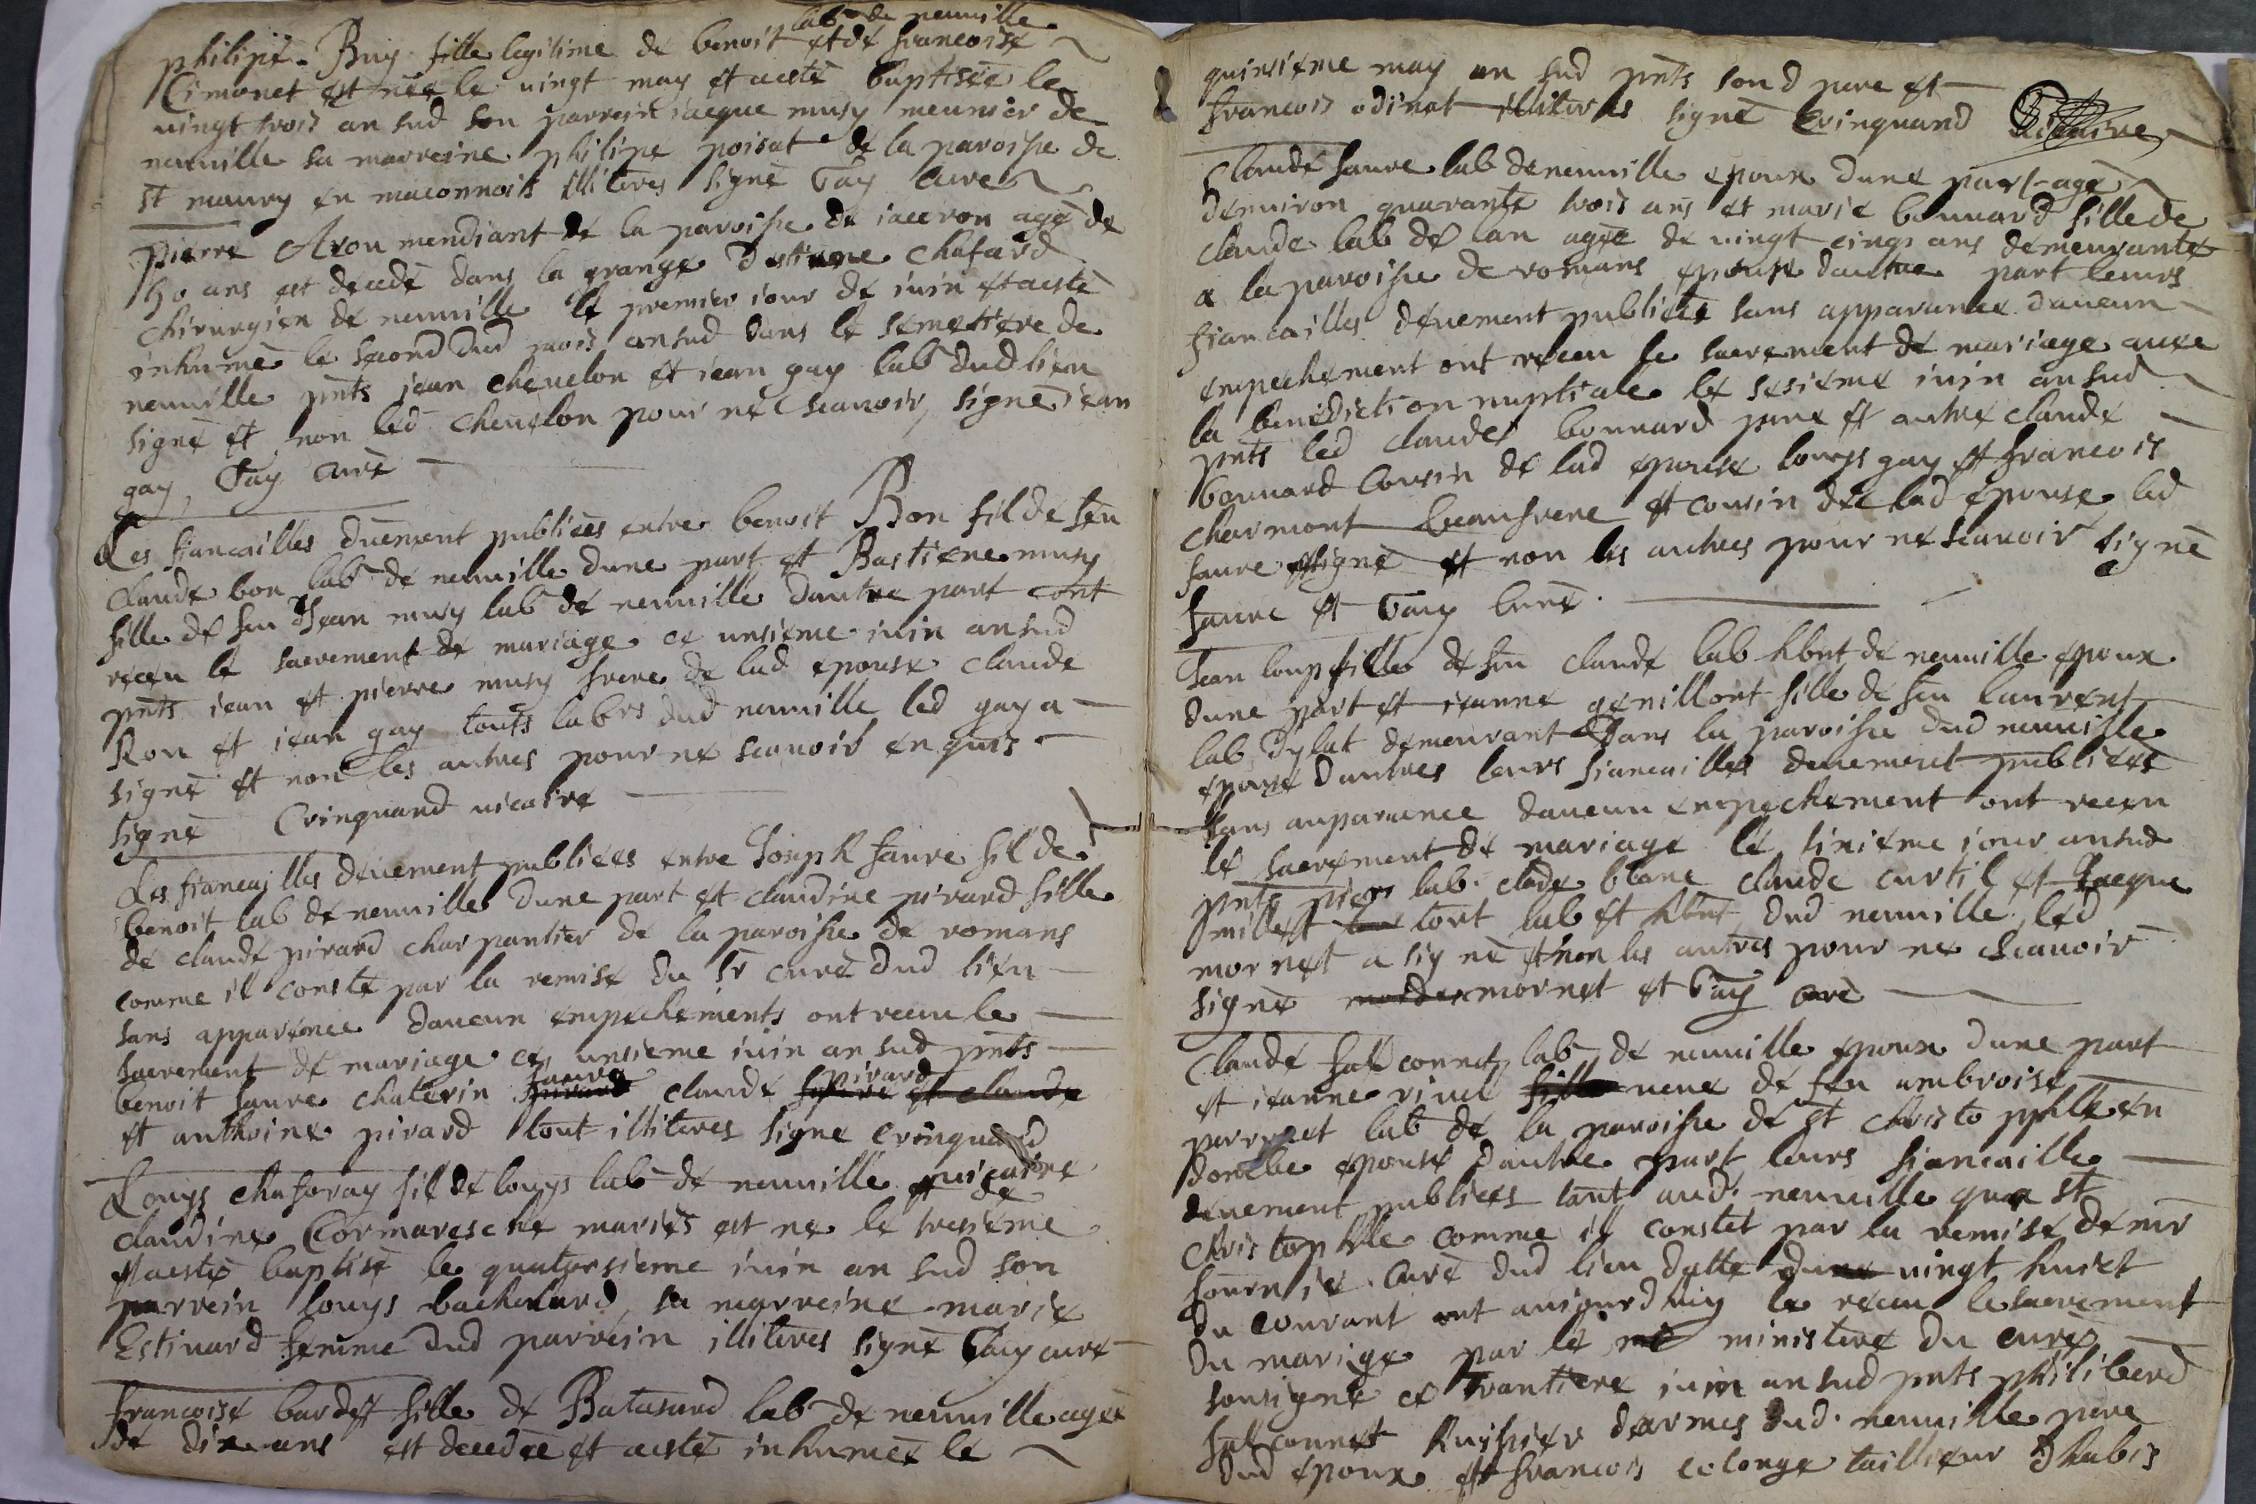 lab de neuville
philipe Buy fille legitime de benoit et de francoise
Cimonet est née le vingt may et aesté baptisée le
vingt trois an sud son parrein iacque musy meunier de
neuville sa marreine philipe poisat de la paroisse de
st maury en maconnois illitères signé Gay curé
pierre Aron mendiant de la paroisse de iaceron agé de
50 ans est decedé dans la grange destiene Chatard
chirurgien de neuville le premier iour de iuin et aesté
inhumé le second dud mois an sud dans le semetiere de
neuville pnts jean chevelon et iean gay lab dud lieu
signé et non led chevelon pour ne scavoir, signé iean
gay, Gay curé
Les fiancailles duement publiées entre benoit Bon fil de feu
Claude bon lab de neuville dune part et Bastiene musy
fille de feu Jean musy lab de neuville dautre part ont
receu le sacrement de mariage ce unsieme iuin an sud
pnts iean et pierre musy frere de lad epouse claude
Ron et iean gay touts labrs dud neuville led gay a
signé et non les autres pour ne scavoir enquis
signé Cringuand vicaire
Les fiancailles devement publiées entre Joseph faure fil de
benoit lab de neuville dune part et claudine pirard fille
de claude pirard charpantier de la paroisse de romans
comme il conste par la remise du sr curé dud lieu
sans apparence daucun empechements ont receu le
sacrement de mariage ce unsieme iuin an sud pnts
benoit faure chaterin faure claude pirard
et anthoine pirard tout illiteres signé cringuand
vicaire
Louys chaforay fil de louys lab de neuville et de
claudine Cormaresche mariés est ne le tresieme
et aesté baptisé le quatorsieme iuin an sud son
parrein louys bachelard, sa marreine marie
Estivard femme dud parrein illiteres signé Gay curé
francoise bardet fille de Batasard lab de neuville agée
de dix ans est decedée et aesté inhumée le
quinsieme may an sud pnts son d pere et
francois odinet illiteres signé Cringuand vicaire
Claude faure lab de neuville epoux dune part agé
denviron quarante trois ans et marie bonnard fille de
claude lab de lan agée de vingt cinqs ans demeurante
a la paroisse de romans epouse dautre part leurs
fiancailles devement publiées sans apparance daucun
empechement ont receu le sacrement de mariage avec
la benediction nuptiale le sesieme iuin an sud
pnts led claude bonnard pere et autre claude
bonnard cousin de lad epouse louys gay et francois
charmont beaufrere et cousin de lad epouse led
faure a signé et non les autres pour ne scavoir signé
faure et Gay curé.
Jean loup fille de feu claude lab hbnt de neuville epoux
dune part et ieanne genillont fille de feu laurent
lab dylat demeurant dans la paroisse dud neuville
epouse dautres leurs fiancailles devement publiées
sans auparance daucun empechement ont receu
le sacrement de mariage le sixieme iour an sud
pnts lab. clade blanc claude curtil et Jacque
millet tout lab et hbnt dud neuville, led
mornet a signé et non les autres pour ne scavoir
signé mornet et Gay curé
Claude falconnet lab de neuville epoux dune part
et ieanne rivel veue de feu ambroise
perronet lab de la paroisse de st christophle en
dombe epouse dautre part leurs fiancaille
devement publiées tant aud. neuville qua st
christophle comme il constet par la remise de mr
fournie curé dud lieu datte vingt huict
du courant ont auiourdhuy le receu le sacrement
du marige par le ministere du curé
sousigné ce trantiere iuin an sud pnts philiberd
falconnet huissier darmes dud. neuville pere
dud epoux et francois colonge tailleur dhabis